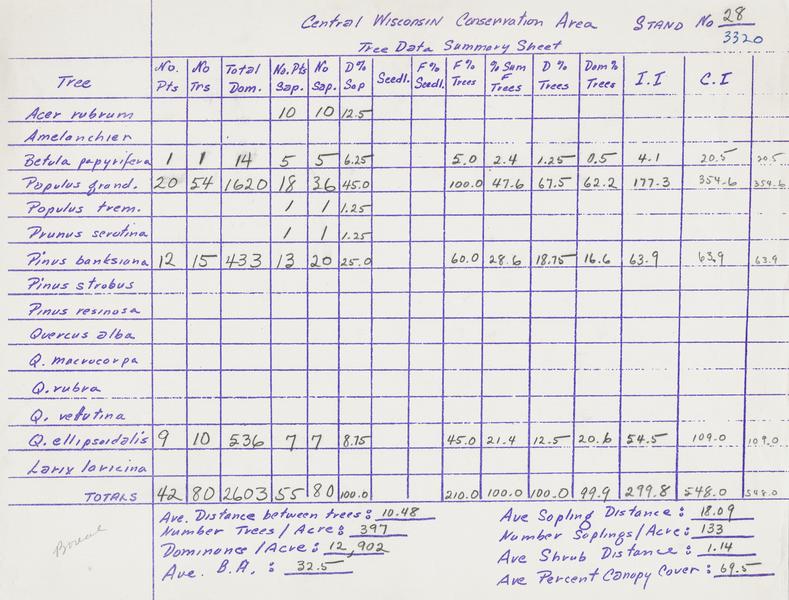 Central Wisconsin Conservation Area STAND No 28
3320
Tree Data Summary Sheet
Tree No. Pts No Trs Total Dom. No. Pts Sap. No Sap. D% Sap Seedl. F% Seedl. F% Trees % Sum F Trees D% Trees Dom% Trees I.I C.I
Acer rubrum 10 10 12.5
Amelanchier
Betula papyrifera 1 1 14 5 5 6.25 5.0 2.4 1.25 0.5 4.1 20.5 20.5
Populus grand. 20 54 1620 18 36 45.0 100.0 47.6 67.5 62.2 177.3 354.6 354.6
Populus trem. 1 1 1.25
Prunus serotina 1 1 1.25
Pinus banksiana 12 15 433 13 20 25.0 60.0 28.6 18.75 16.6 63.9 63.9 63.9
Pinus strobus
Pinus resinosa
Quercus alba
Q. macrocarpa
Q. rubra
Q. velutina
Q. ellipsoidalis 9 10 536 7 7 8.75 45.0 21.4 12.5 20.6 54.5 109.0 109.0
Larix laricina
TOTALS 42 80 2603 55 80 100.0 210.0 100.0 100.0 99.9 299.8 548.0 548.0
Ave. Distance between trees: 10.48
Number Trees/Acre: 397
Dominance/Acre: 12,902
Ave. B.A.: 32.5
Ave Sapling Distance: 18.09
Number Saplings/Acre: 133
Ave Shrub Distance: 1.14
Ave Percent Canopy Cover: 69.5
Boreal